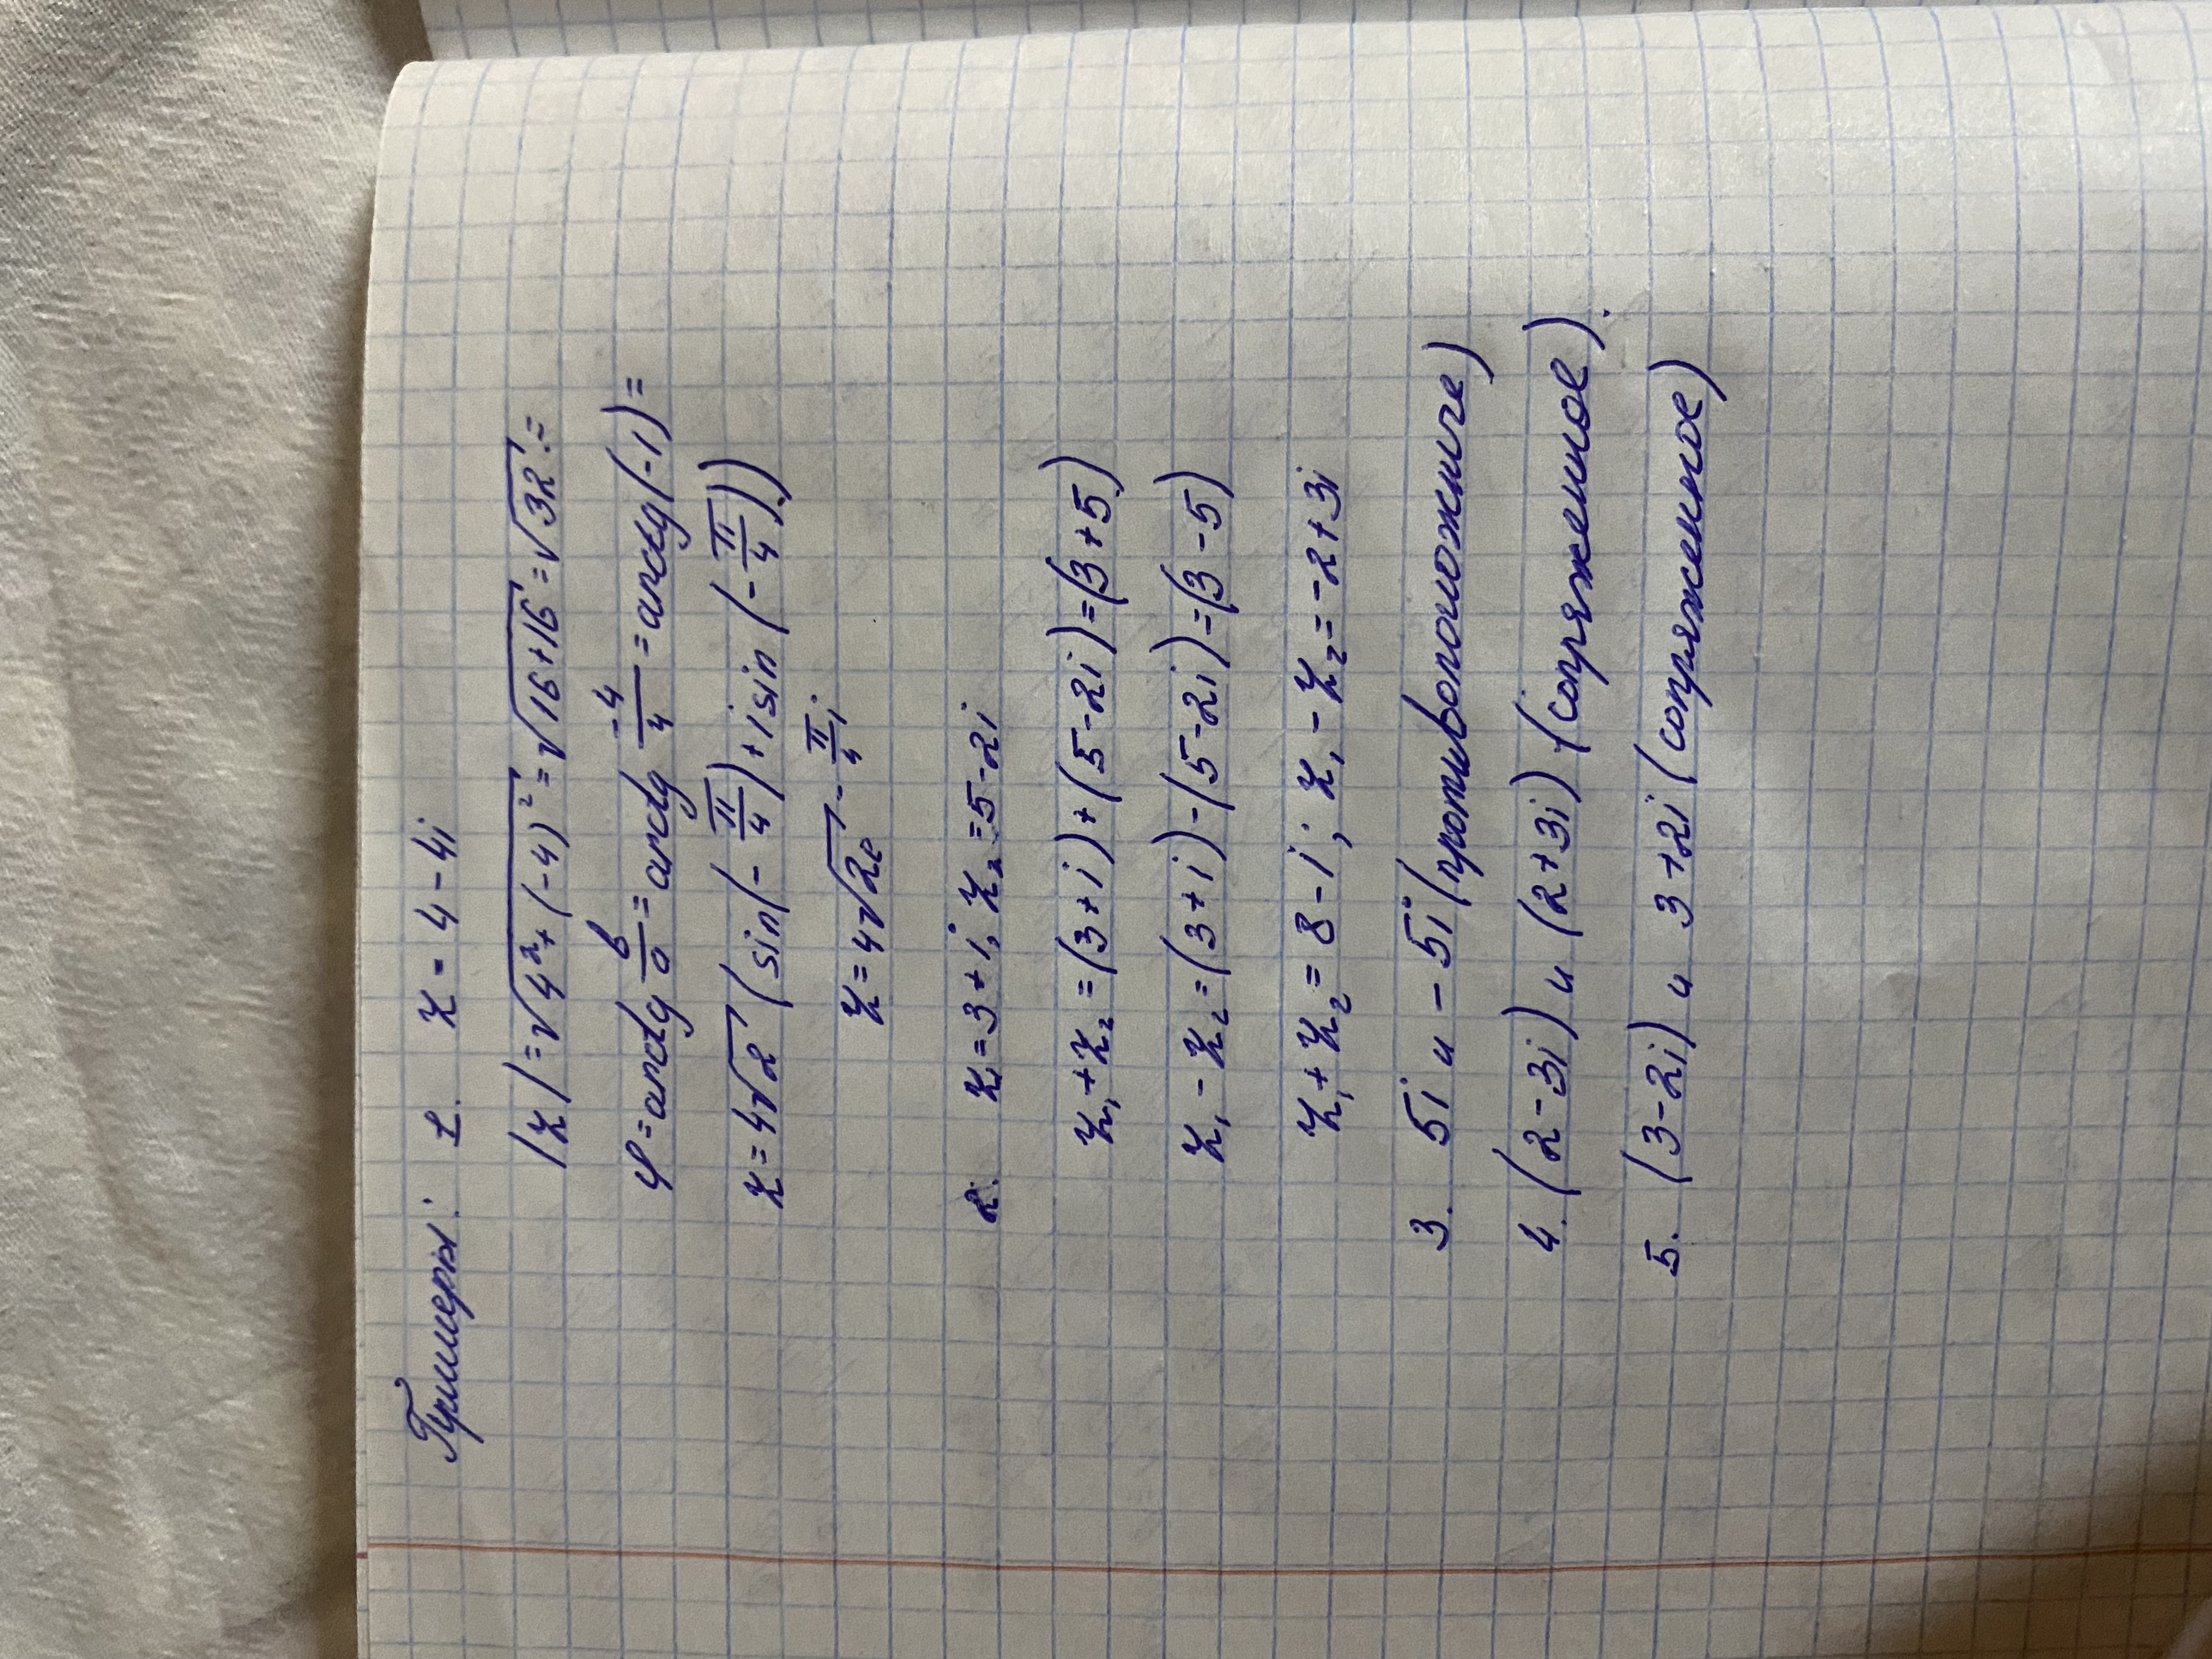 Примеры: 1. z = 4 - 4i
|z| = √(4² + (-4)²) = √(16+16) = √32 =
φ = arctg b/a = arctg -4/4 = arctg(-1) =
z = 4√2 (sin(-π/4) + i sin(-π/4))
z = 4√2e^(-π/4 i)
2. z₁ = 3 + i, z₂ = 5 - 2i
z₁ + z₂ = (3+i) + (5-2i) = (3+5)
z₁ - z₂ = (3+i) - (5-2i) = (3-5)
z₁ + z₂ = 8 - i; z₁ - z₂ = -2+3i
3. 5i и -5i (противоположные)
4. (2-3i) и (2+3i) (сопряженное).
5. (3-2i) и 3+2i (сопряженное)